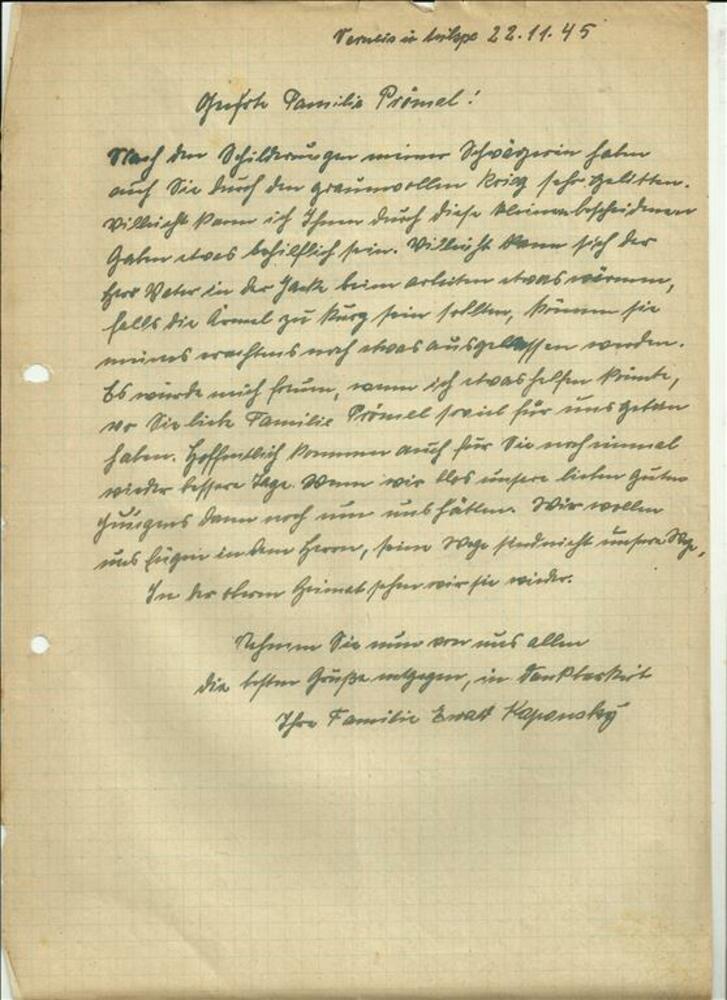 22.11.45
Geehrte Familie Prömel!
Nach den Schilderungen meiner Schwägerin haben
auch Sie durch den grauenvollen Krieg sehr gelitten.
Villeicht kann ich Ihnen durch diese kleinen bescheidenen
Gaben etwas behilflich sein. Villeicht kann sich der
Herr Vater in der Jacke beim arbeiten etwas wärmen,
falls die Ärmel zu kurz sein sollten, können sie
meines erachtens noch etwas ausgelassen werden.
Es würde mich freuen, wenn ich etwas helfen könnte,
wo Sie liebe Familie Prömel soviel für uns getan
haben. Hoffentlich kommen auch für Sie noch einmal
wieder bessere Tage. Wenn wir blos unsere lieben guten
Jungens dann noch um uns hätten. Wir wollen
uns fügen in dem Herrn, seine Wege sind nicht unsere Wege,
In der obern Heimat sehen wir sie wieder.
Nehmen Sie nun von uns allen
die besten Grüße entgegen, in Dankbarkeit
Ihre Familie Ewald